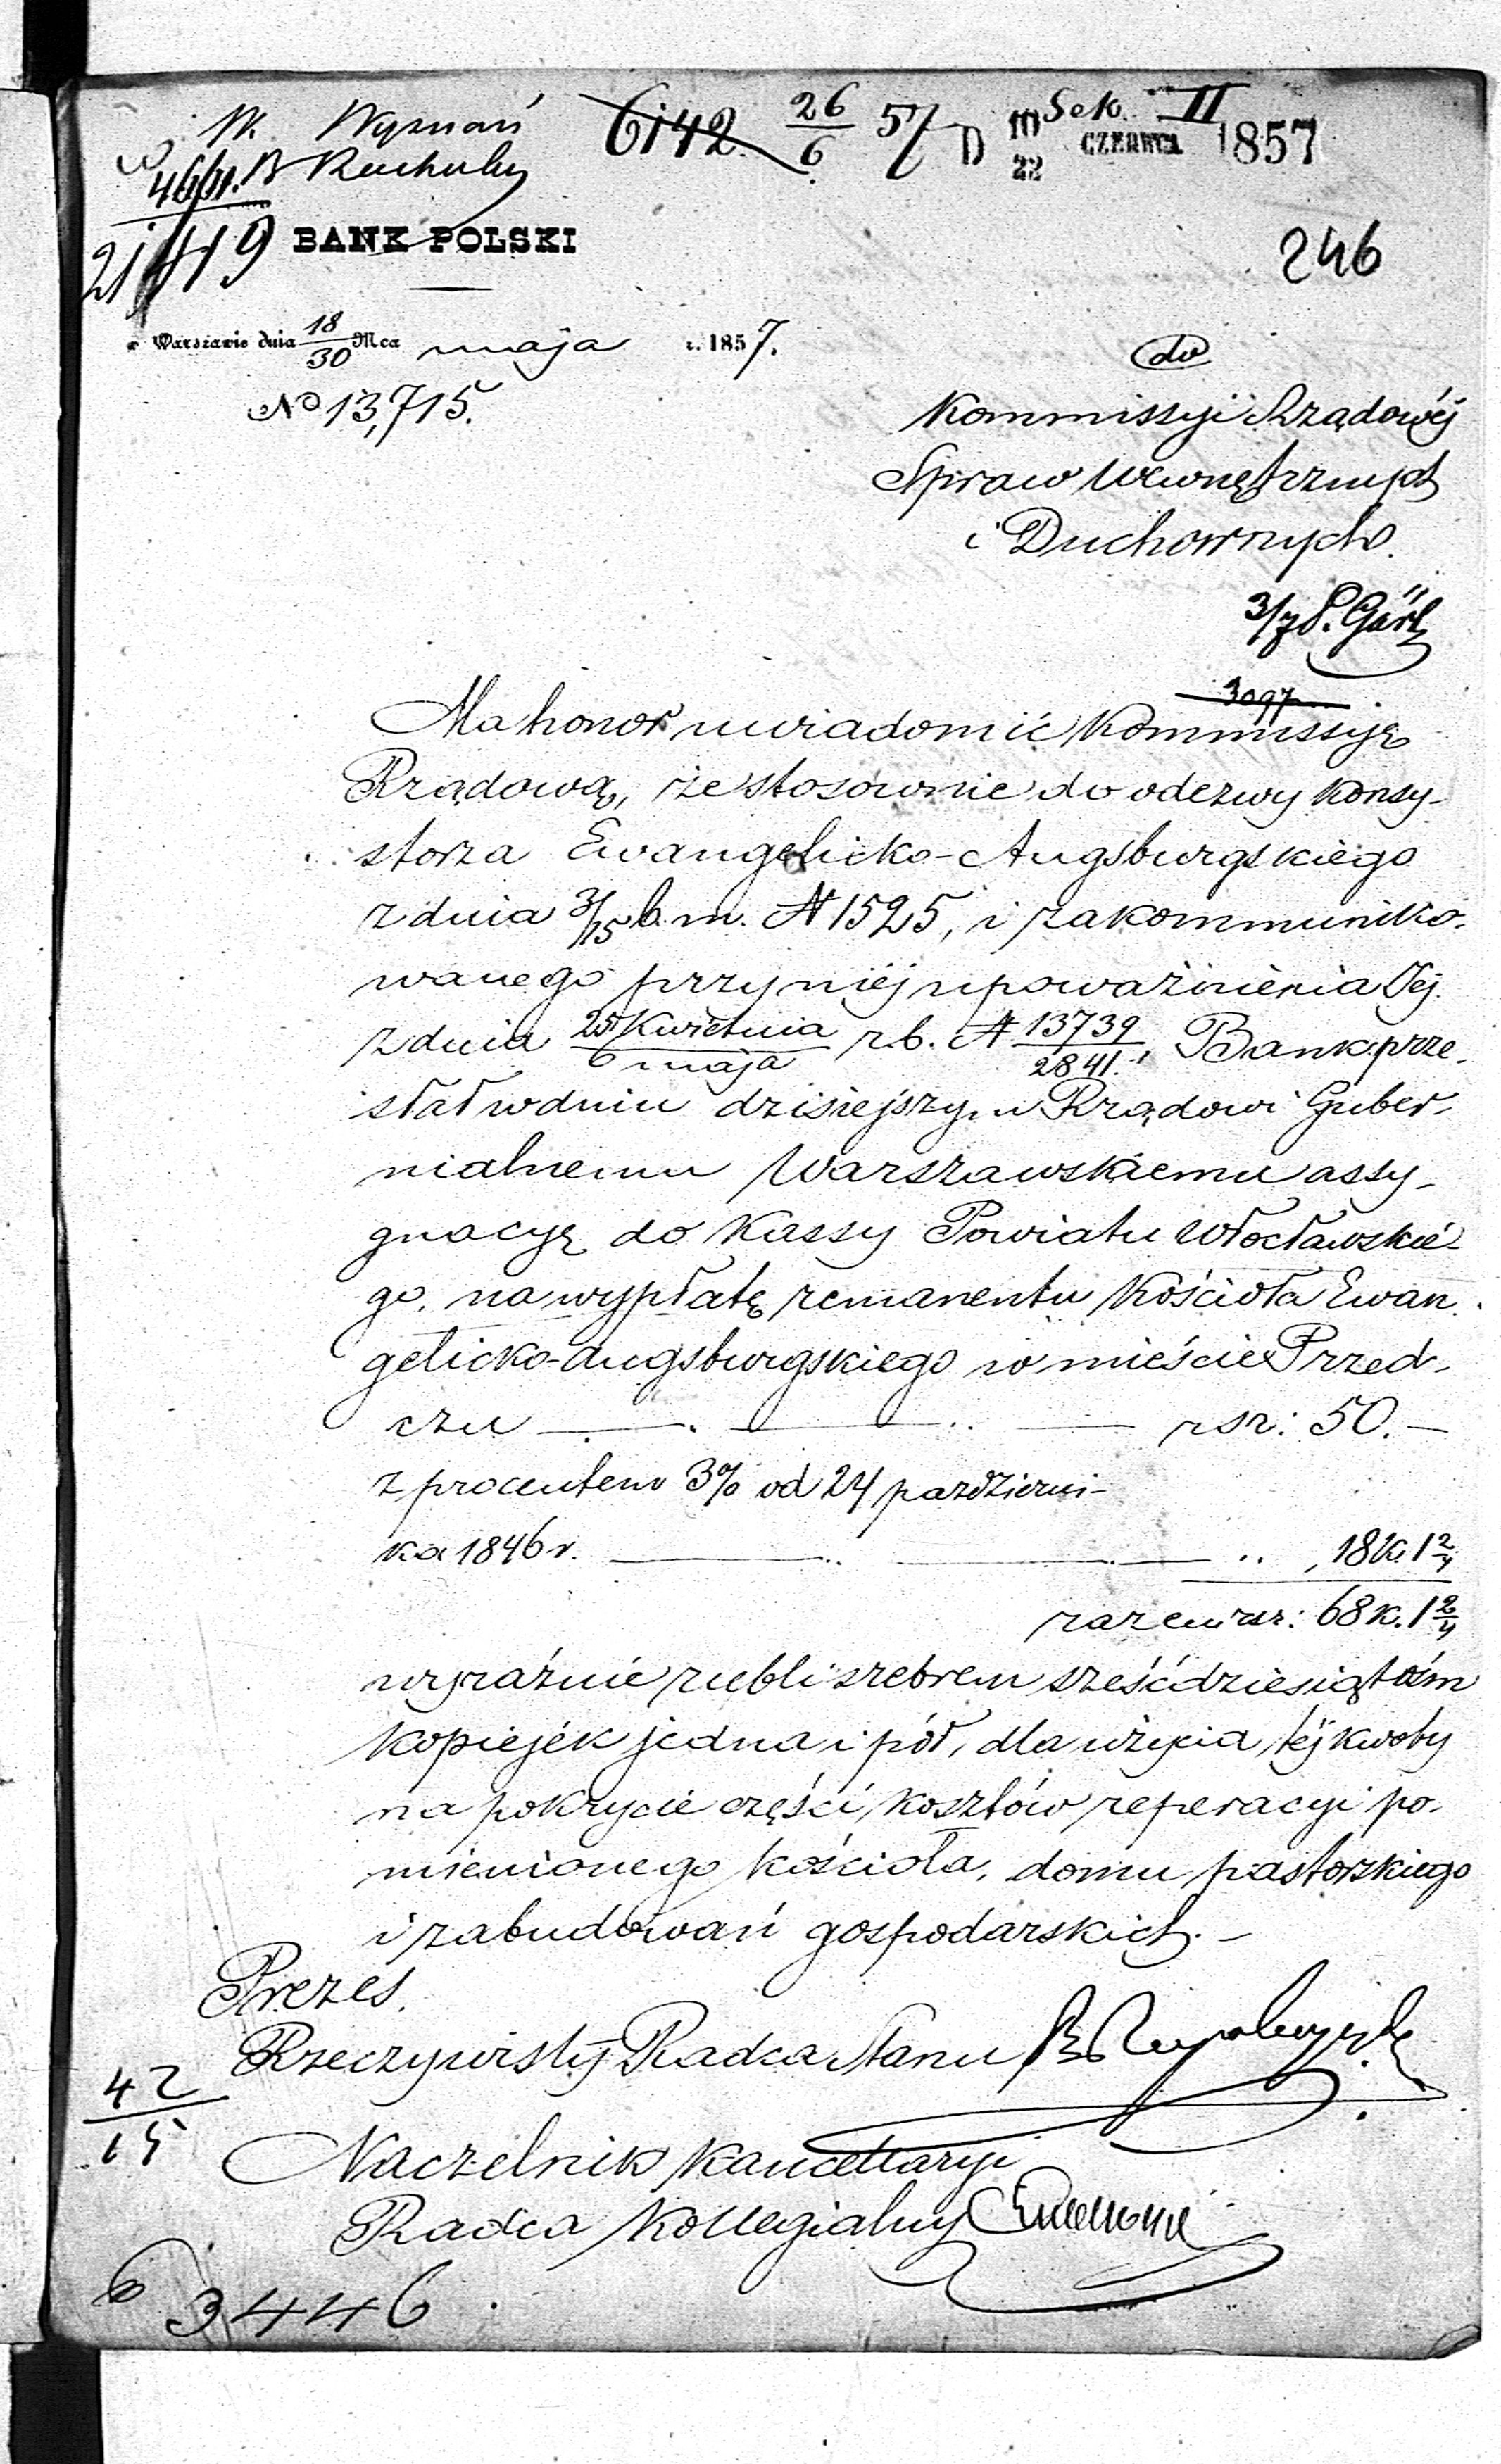 W. Wyznań
6142 26/6 57 D 10/22 CZERWCA 1857
Sek. II
Rachuby
21419 BANK POLSKI
246
w Warszawie dnia 18/30 Mca maja r. 1857.
No 13,715.
do
Kommissyi Rządowéj
Spraw Wewnętrznych
i Duchownych.
3/7 P. Görtz
3097
Ma honor uwiadomić Kommissyę
Rządową, że stosownie do odezwy Konsy-
storza Ewangelicko-Augsburgskiego
z dnia 3/15 b. m. N 1525, i zakommuniko-
wanego przy niéj upoważnienia Jéj
z dnia 25 Kwietnia/6 maja r. b. N 13739/2841, Bank prze-
słał w dniu dzisiejszym Rządowi Guber-
nialnemu Warszawskiemu assy-
gnacyę do Kassy Powiatu Włocławskie-
go, na wypłatę remanentu Kościoła Ewan-
gelicko-Augsburgskiego w mieście Przed-
czu — — — rsr: 50.—
z procentem 3% od 24 październi-
ka 1846 r. — — 18 k. 1 2/4
razem rsr: 68 k. 1 2/4
wyraźnie rubli srebrem sześćdziesiąt ośm
kopiejek jedna i pół, dla użycia téj kwoty
na pokrycie części kosztów reperacyi po-
mienionego kościoła, domu pastorskiego
i zabudowań gospodarskich.—
Prezes.
Rzeczywisty Radca Stanu
42/15
Naczelnik Kancellaryi
Radca Kollegialny
3446